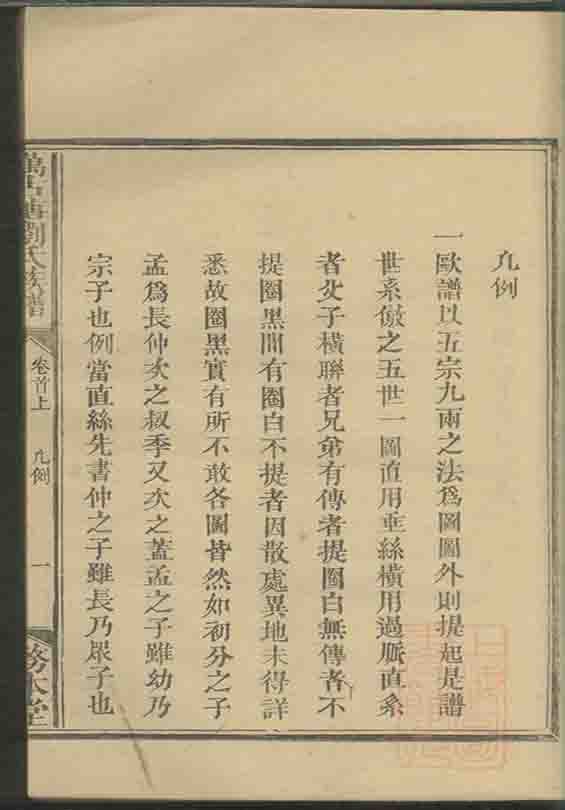 凡例
一歐譜以五宗九兩之法爲圖圖外則提起是譜
世系倣之五世一圖直用垂絲橫用過脈直系
者父子橫聯者兄弟有傳者提圈白無傳者不
提圈黑間有圈白不提者因散處異地未得詳
悉故圈黑實有所不敢各圖皆然如初分之子
孟爲長仲次之叔季又次之蓋孟之子雖幼乃
宗子也例當直絲先書仲之子雖長乃眾子也
劉氏族譜
卷首上
凡例
一
務本堂